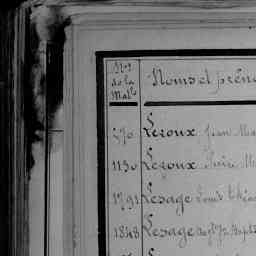 Nos
de la
Mat.le
Noms et préno
570 Leroux Jean Ma
1130 Leroux Pierre M
1791 Lesage Louis
1848 Lesage